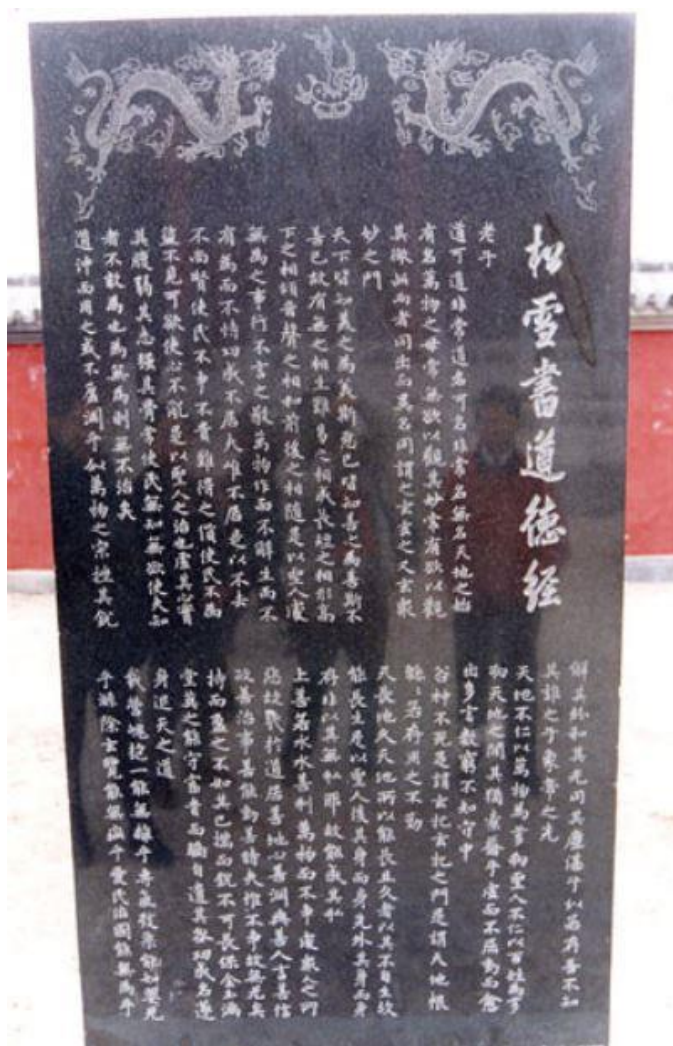 松雪書道德经
老子
道可道非常道名可名非常名無名天地之始
有名萬物之母常無欲以觀其妙常有欲以觀
其徼此兩者同出而異名同謂之玄玄之又玄衆
妙之門
天下皆知美之為美斯惡已皆知善之為善斯不
善已故有無之相生難易之相成長短之相形高
下之相傾音聲之相和前後之相隨是以聖人處
無為之事行不言之教萬物作而不辭生而不
有為而不恃功成不居夫唯不居是以不去
不尚賢使民不爭不貴難得之貨使民不為
盜不見可欲使心不亂是以聖人之治也虛其心實
其腹弱其志強其骨常使民無知無欲使夫知
者不敢為也為無為則無不治矣
道沖而用之或不盈淵乎似萬物之宗挫其銳
解其紛和其光同其塵湛乎似若存吾不知
其誰之子象帝之先
天地不仁以萬物為芻狗聖人不仁以百姓為芻
狗天地之間其猶橐籥乎虛而不屈動而愈
出多言數窮不如守中
谷神不死是謂玄牝玄牝之門是謂天地根
綿〻若存用之不勤
天長地久天地所以能長且久者以其不自生故
能長生是以聖人後其身而身先外其身而身
存非以其無私耶故能成其私
上善若水水善利萬物而不爭處衆人之所
惡故幾於道居善地心善淵與善人言善信
政善治事善能動善時夫惟不爭故無尤矣
持而盈之不如其已揣而銳不可長保金玉滿
堂莫之能守富貴而驕自遺其咎功成名遂
身退天之道
載營魄抱一能無離乎專氣致柔能如嬰兒
乎滌除玄覽能無疵乎愛民治國能無為乎